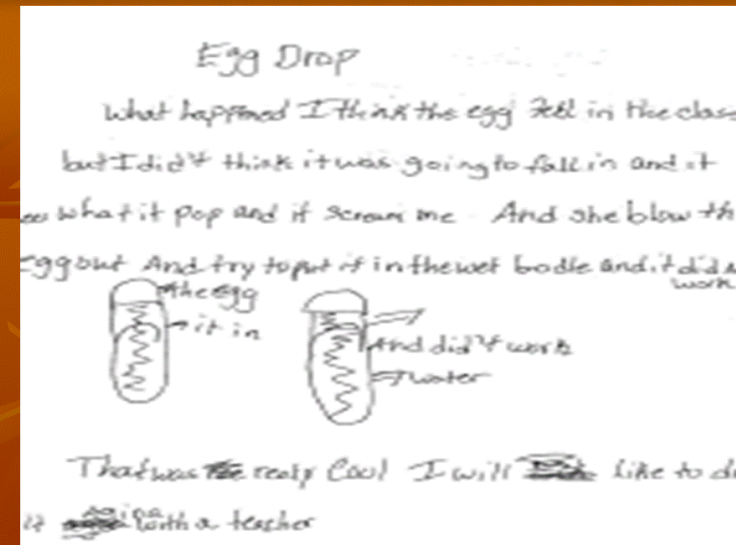 Egg Drop
What happened I think the egg fell in the class
but I did't think it was going to fall in and it
what it pop and it scream me And she blow th
Egg out And try to put it in the wet bodle and it did
work
the egg
it in
And did't work
water
That was realy Cool I will like to d
it with a teacher